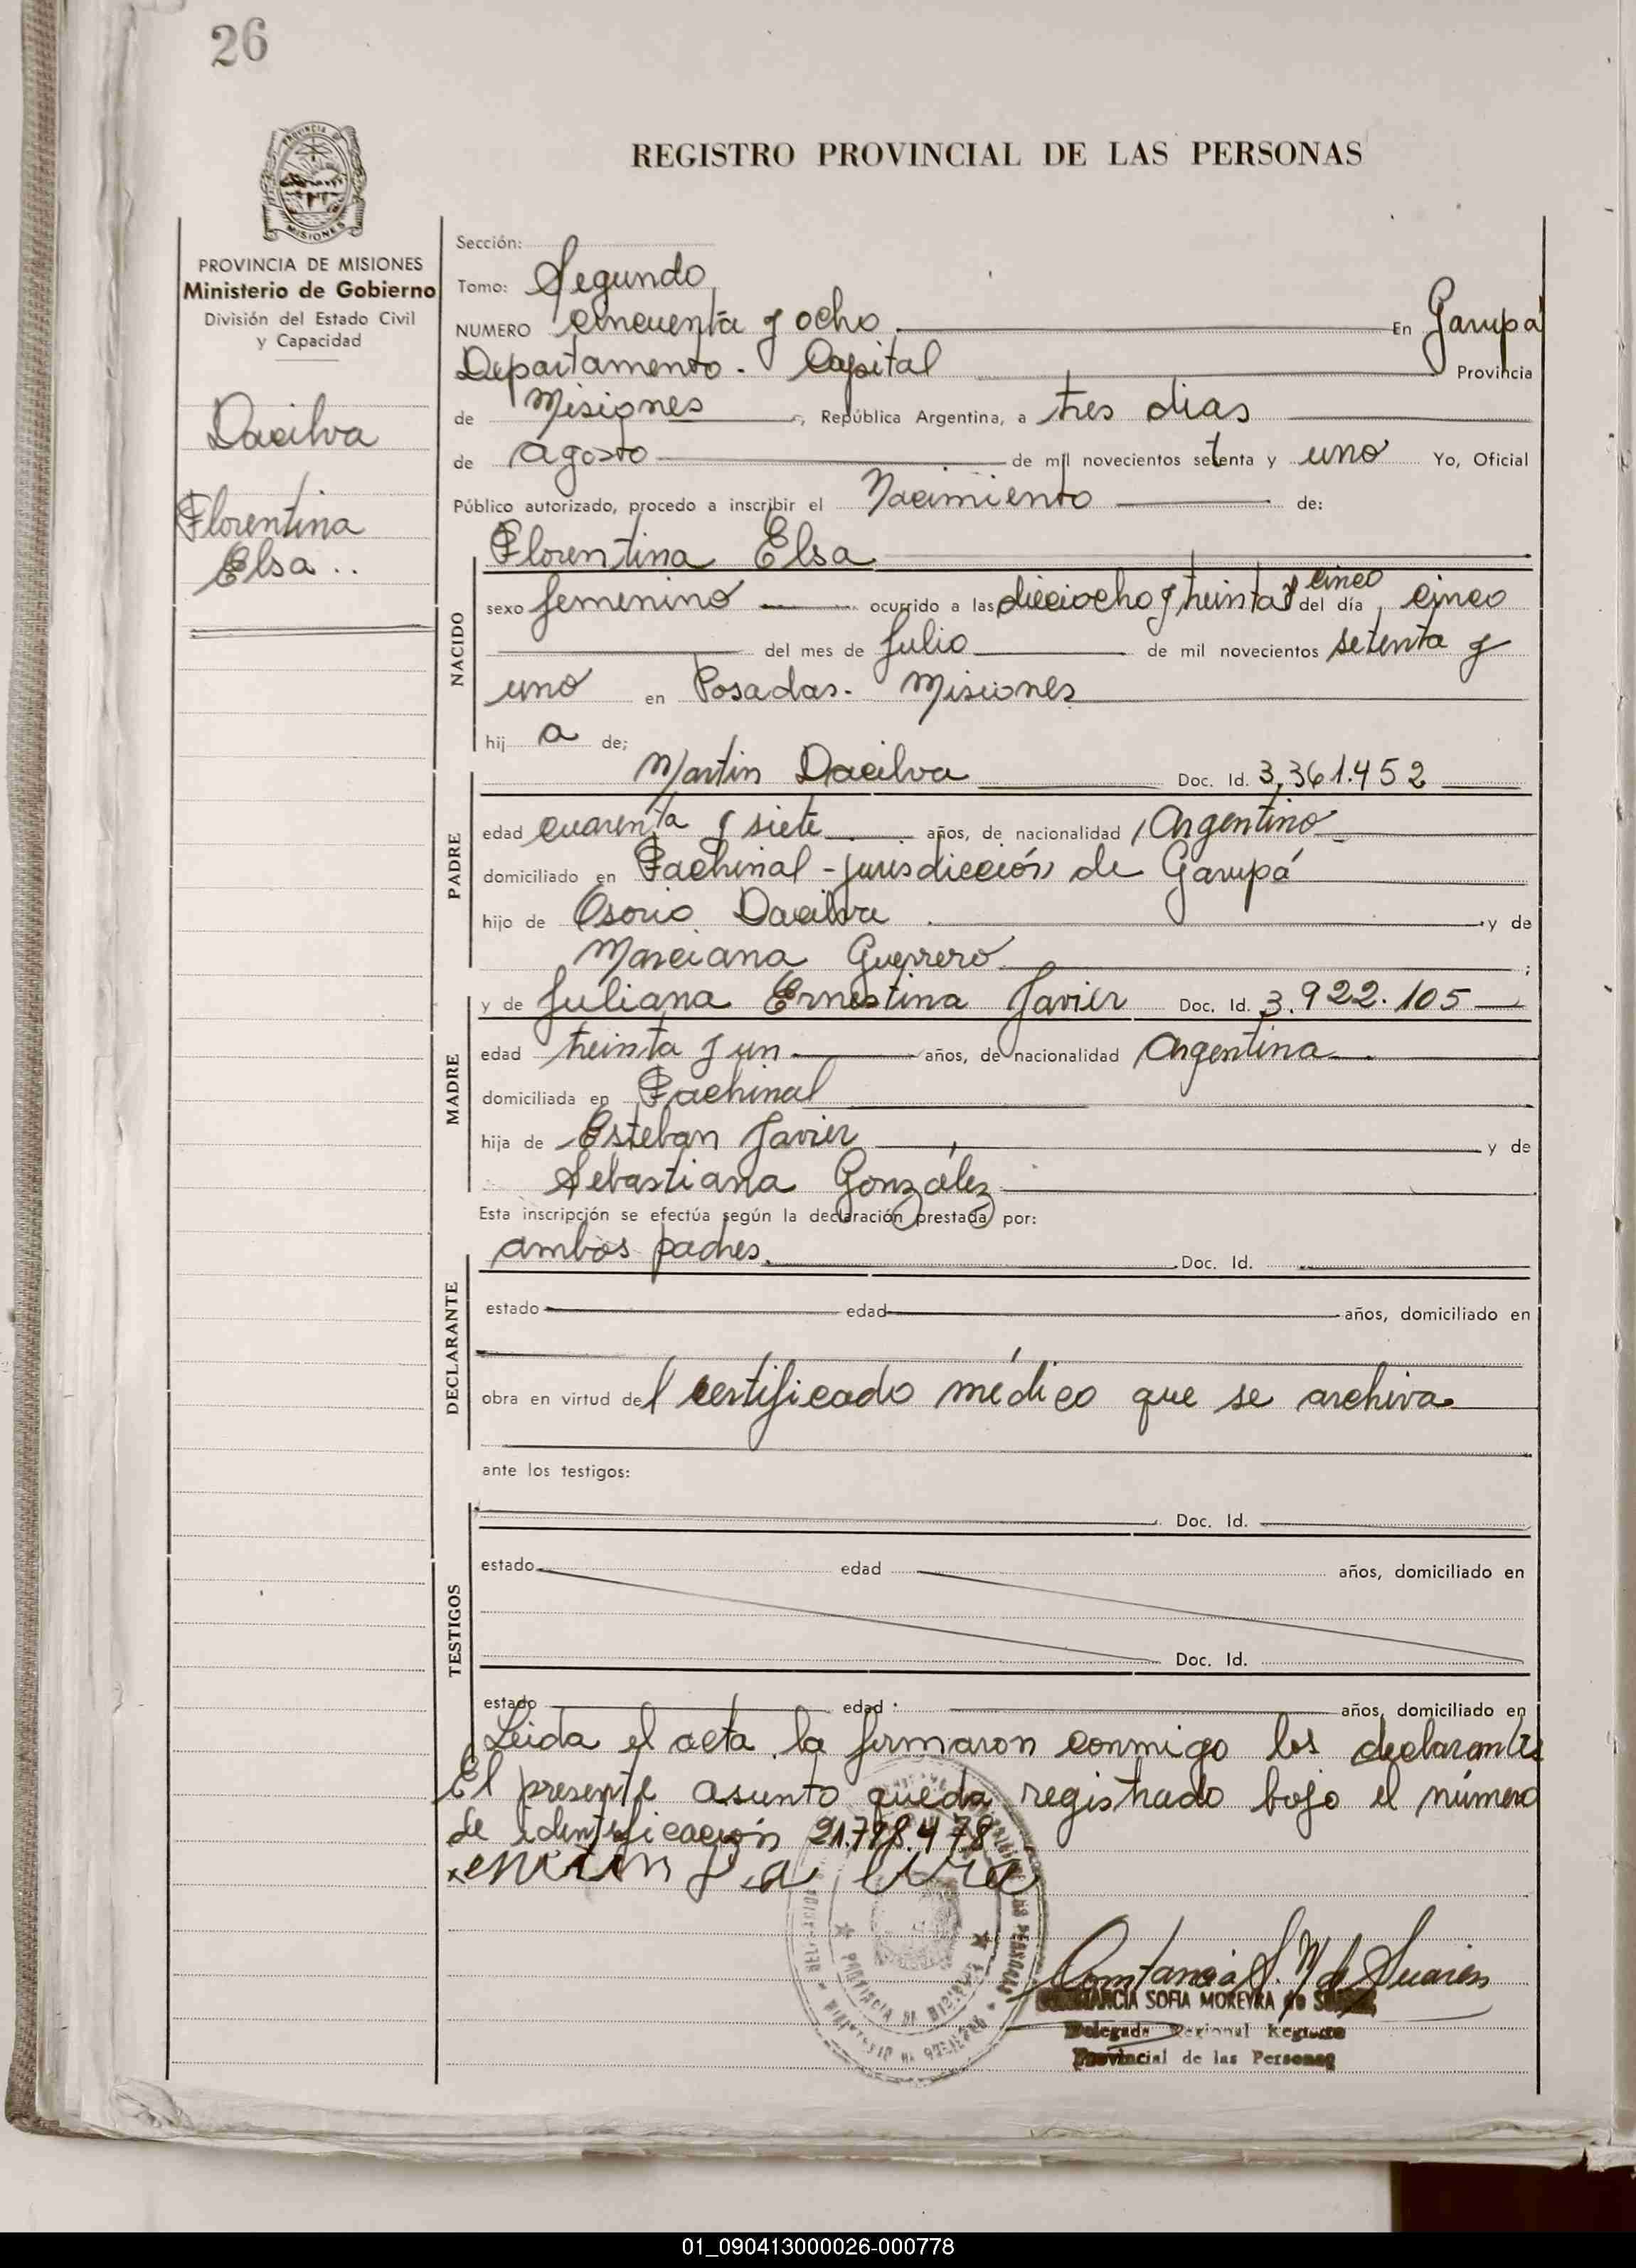 26
REGISTRO PROVINCIAL DE LAS PERSONAS
PROVINCIA DE MISIONES
Ministerio de Gobierno
División del Estado Civil
y Capacidad
Dacilva
Florentina
Elsa ..
Sección:
Tomo: Segundo
NUMERO cincuenta y ocho En Garupá
Departamento - Capital Provincia
de Misiones, República Argentina, a tres dias
de agosto de mil novecientos setenta y uno Yo, Oficial
Público autorizado, procedo a inscribir el Nacimiento de:
Florentina Elsa
NACIDO
sexo femenino ocurrido a las dieciocho y treinta y cinco del día cinco
del mes de Julio de mil novecientos setenta y
uno en Posadas - Misiones
hij a de;
Martin Dacilva Doc. Id. 3,361.452
PADRE
edad cuarenta y siete años, de nacionalidad Argentino
domiciliado en Fachinal - jurisdicción de Garupá
hijo de Osorio Dacilva y de
Marciana Guerrero ;
y de Juliana Ernestina Javier Doc. Id. 3.922.105
MADRE
edad treinta y un años, de nacionalidad Argentina
domiciliada en Fachinal
hija de Esteban Javier y de
Sebastiana González
Esta inscripción se efectúa según la declaración prestada por:
ambos padres. Doc. Id.
DECLARANTE
estado edad años, domiciliado en
obra en virtud del certificado médico que se archiva
ante los testigos:
TESTIGOS
Doc. Id.
estado edad años, domiciliado en
Doc. Id.
estado edad años, domiciliado en
Leida el acta la firmaron conmigo los declarantes
El presente asunto queda registrado bajo el número
de identificación 21.798.478
Constancia S. M de Suarez
CONSTANCIA SOFIA MOREYRA de SUAREZ
Delegada Regional Registro
Provincial de las Personas
PROVINCIA DE MISIONES
01_090413000026-000778